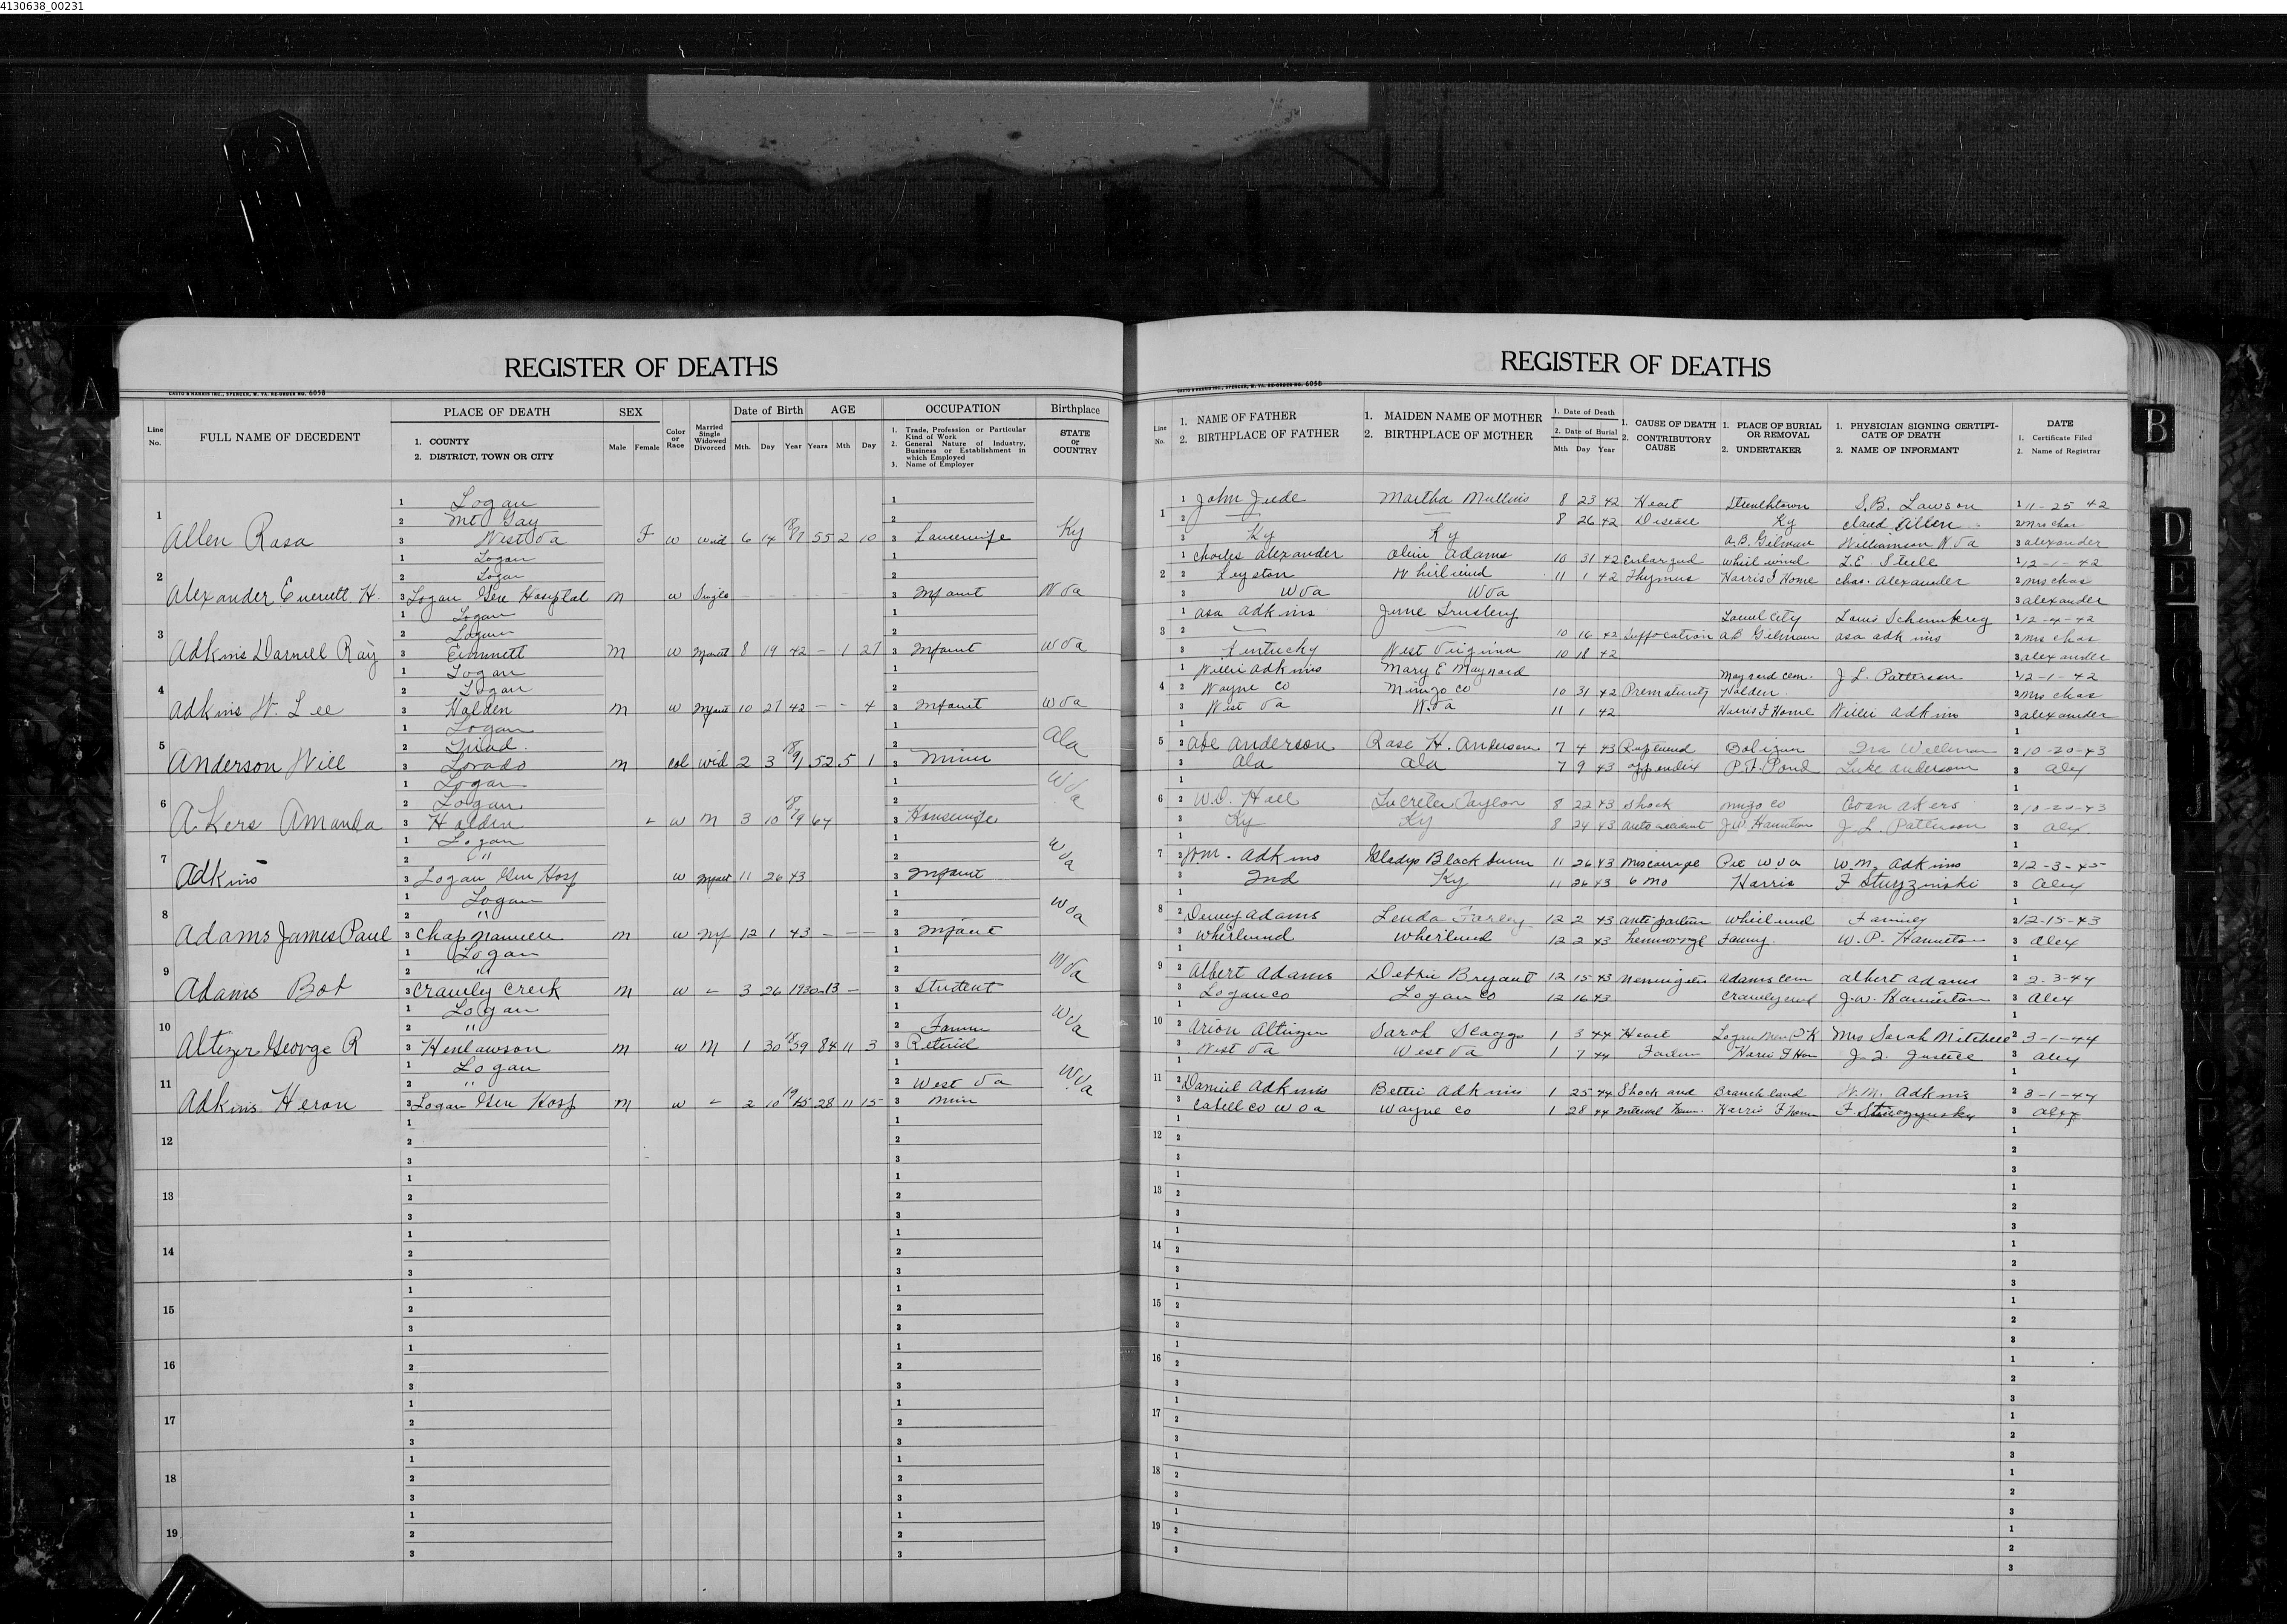 4130638_00231
REGISTER OF DEATHS
CASTO & HARRIS INC., SPENCER, W. VA. RE-ORDER NO. 6058
Line No.
FULL NAME OF DECEDENT
PLACE OF DEATH
1. COUNTY
2. DISTRICT, TOWN OR CITY
SEX
Male Female
Color or Race
Married Single Widowed Divorced
Date of Birth
Mth. Day Year
AGE
Years Mth Day
OCCUPATION
1. Trade, Profession or Particular Kind of Work
2. General Nature of Industry, Business or Establishment in which Employed
3. Name of Employer
Birthplace
STATE or COUNTRY
1 Logan
2 Mt Gay
1 Allen Rosa 3 West Va F W Wid 6 14 1887 55 2 10 3 Housewife Ky
1 Logan
2 Logan
2 Alexander Everett H. 3 Logan Gen Hospital M W Single - - - - - - 3 Infant W Va
1 Logan
2 Logan
3 Adkins Darnell Ray 3 Emmett M W Infant 8 19 42 - 1 27 3 Infant W Va
1 Logan
2 Logan
4 Adkins W. Lee 3 Holden M W Infant 10 27 42 - - 4 3 Infant W Va
1 Logan
2 Triad.
5 Anderson Will 3 Lorado M Col Wid 2 3 1891 52 5 1 3 Miner Ala
1 Logan
2 Logan
6 Akers Amanda 3 Holden - W M 3 10 1879 64 3 Housewife W Va
1 Logan
2 "
7 Adkins 3 Logan Gen Hosp W Infant 11 26 43 3 Infant W Va
1 Logan
2 "
8 Adams James Paul 3 Chapmanville M W Inf 12 1 43 - - - 3 Infant W Va
1 Logan
2 "
9 Adams Bob 3 Crawley Creek M W - 3 26 1930 13 - 3 Student W Va
1 Logan
2 " 2 Farmer
10 Altizer George R 3 Henlawson M W M 1 30 1859 84 11 3 3 Retired W Va
1 Logan
2 " 2 West Va
11 Adkins Heron 3 Logan Gen Hosp M W - 2 10 1915 28 11 15 3 Miner W Va
12
13
14
15
16
17
18
19
REGISTER OF DEATHS
CASTO & HARRIS INC., SPENCER, W. VA. RE-ORDER NO. 6058
Line No.
1. NAME OF FATHER
2. BIRTHPLACE OF FATHER
1. MAIDEN NAME OF MOTHER
2. BIRTHPLACE OF MOTHER
1. Date of Death
2. Date of Burial
Mth Day Year
1. CAUSE OF DEATH
2. CONTRIBUTORY CAUSE
1. PLACE OF BURIAL OR REMOVAL
2. UNDERTAKER
1. PHYSICIAN SIGNING CERTIFICATE OF DEATH
2. NAME OF INFORMANT
DATE
1. Certificate Filed
2. Name of Registrar
1 John Jude Martha Mullins 8 23 42 Heart S.B. Lawson 1 11-25 42
1 2 8 26 42 Disease Ky Claud Allen 2 Mrs Chas
3 Ky Ky A.B. Gilman Williamson W Va 3 Alexander
1 Charles Alexander Olive Adams 10 31 42 Enlarged Whirlwind L.E. Steele 1 12-1-42
2 2 Keyston Whirlwind 11 1 42 Thymus Harris F Home Chas. Alexander 2 Mrs Chas
3 W Va W Va 3 Alexander
1 Asa Adkins June Laurel City 1 12-4-42
3 2 10 16 42 Suffocation AB Gilman Asa Adkins 2 Mrs Chas
3 Kentucky West Virginia 10 18 42 3 Alexander
1 Willie Adkins Mary E Maynard Maynard Cem. J L. Patterson 1 12-1-42
4 2 Wayne Co Mingo Co 10 31 42 Prematurity Holden 2 Mrs Chas
3 West Va W. Va 11 1 42 Harris F Home Willie Adkins 3 Alexander
5 2 Abe Anderson Rose H. Anderson 7 4 43 Ruptured Ira Wellman 2 10-20-43
3 Ala Ala 7 9 43 Appendix P.F. Pond Luke Anderson 3 Alex
6 2 W.D. Hall Lucreta Taylor 8 22 43 Shock Mingo Co Akers 2 10-20-43
3 Ky Ky 8 24 43 Auto accident J W Hamilton J L. Patterson 3 Alex
7 2 Wm. Adkins Gladys Blackburn 11 26 43 Miscarriage W Va W.M. Adkins 2 12-3-45
3 Ind Ky 11 26 43 6 Mo Harris 3 Alex
8 2 Denny Adams Lenda Farley 12 2 43 Whirlwind Family 2 12-15-43
3 Whirlwind Whirlwind 12 2 43 Family. W.P. Hamilton 3 Alex
9 2 Albert Adams Debbie Bryant 12 15 43 Meningitis Adams Cem Albert Adams 2 2-3-44
3 Logan Co Logan Co 12 16 43 J.W. Hamilton 3 Alex
10 2 Arion Altizer Sarah Scaggs 1 3 44 Heart Logan Mem. P K Mrs Sarah Mitchell 2 3-1-44
3 West Va West Va 1 7 44 Failure Harris F Hom J.T. Justice 3 Alex
11 2 Daniel Adkins Bettie Adkins 1 25 44 Shock and Branchland W.M. Adkins 2 3-1-44
3 Cabell Co W Va Wayne Co 1 28 44 Internal Hem. Harris F Home 3 Alex
12
13
14
15
16
17
18
19
A
B
D
E